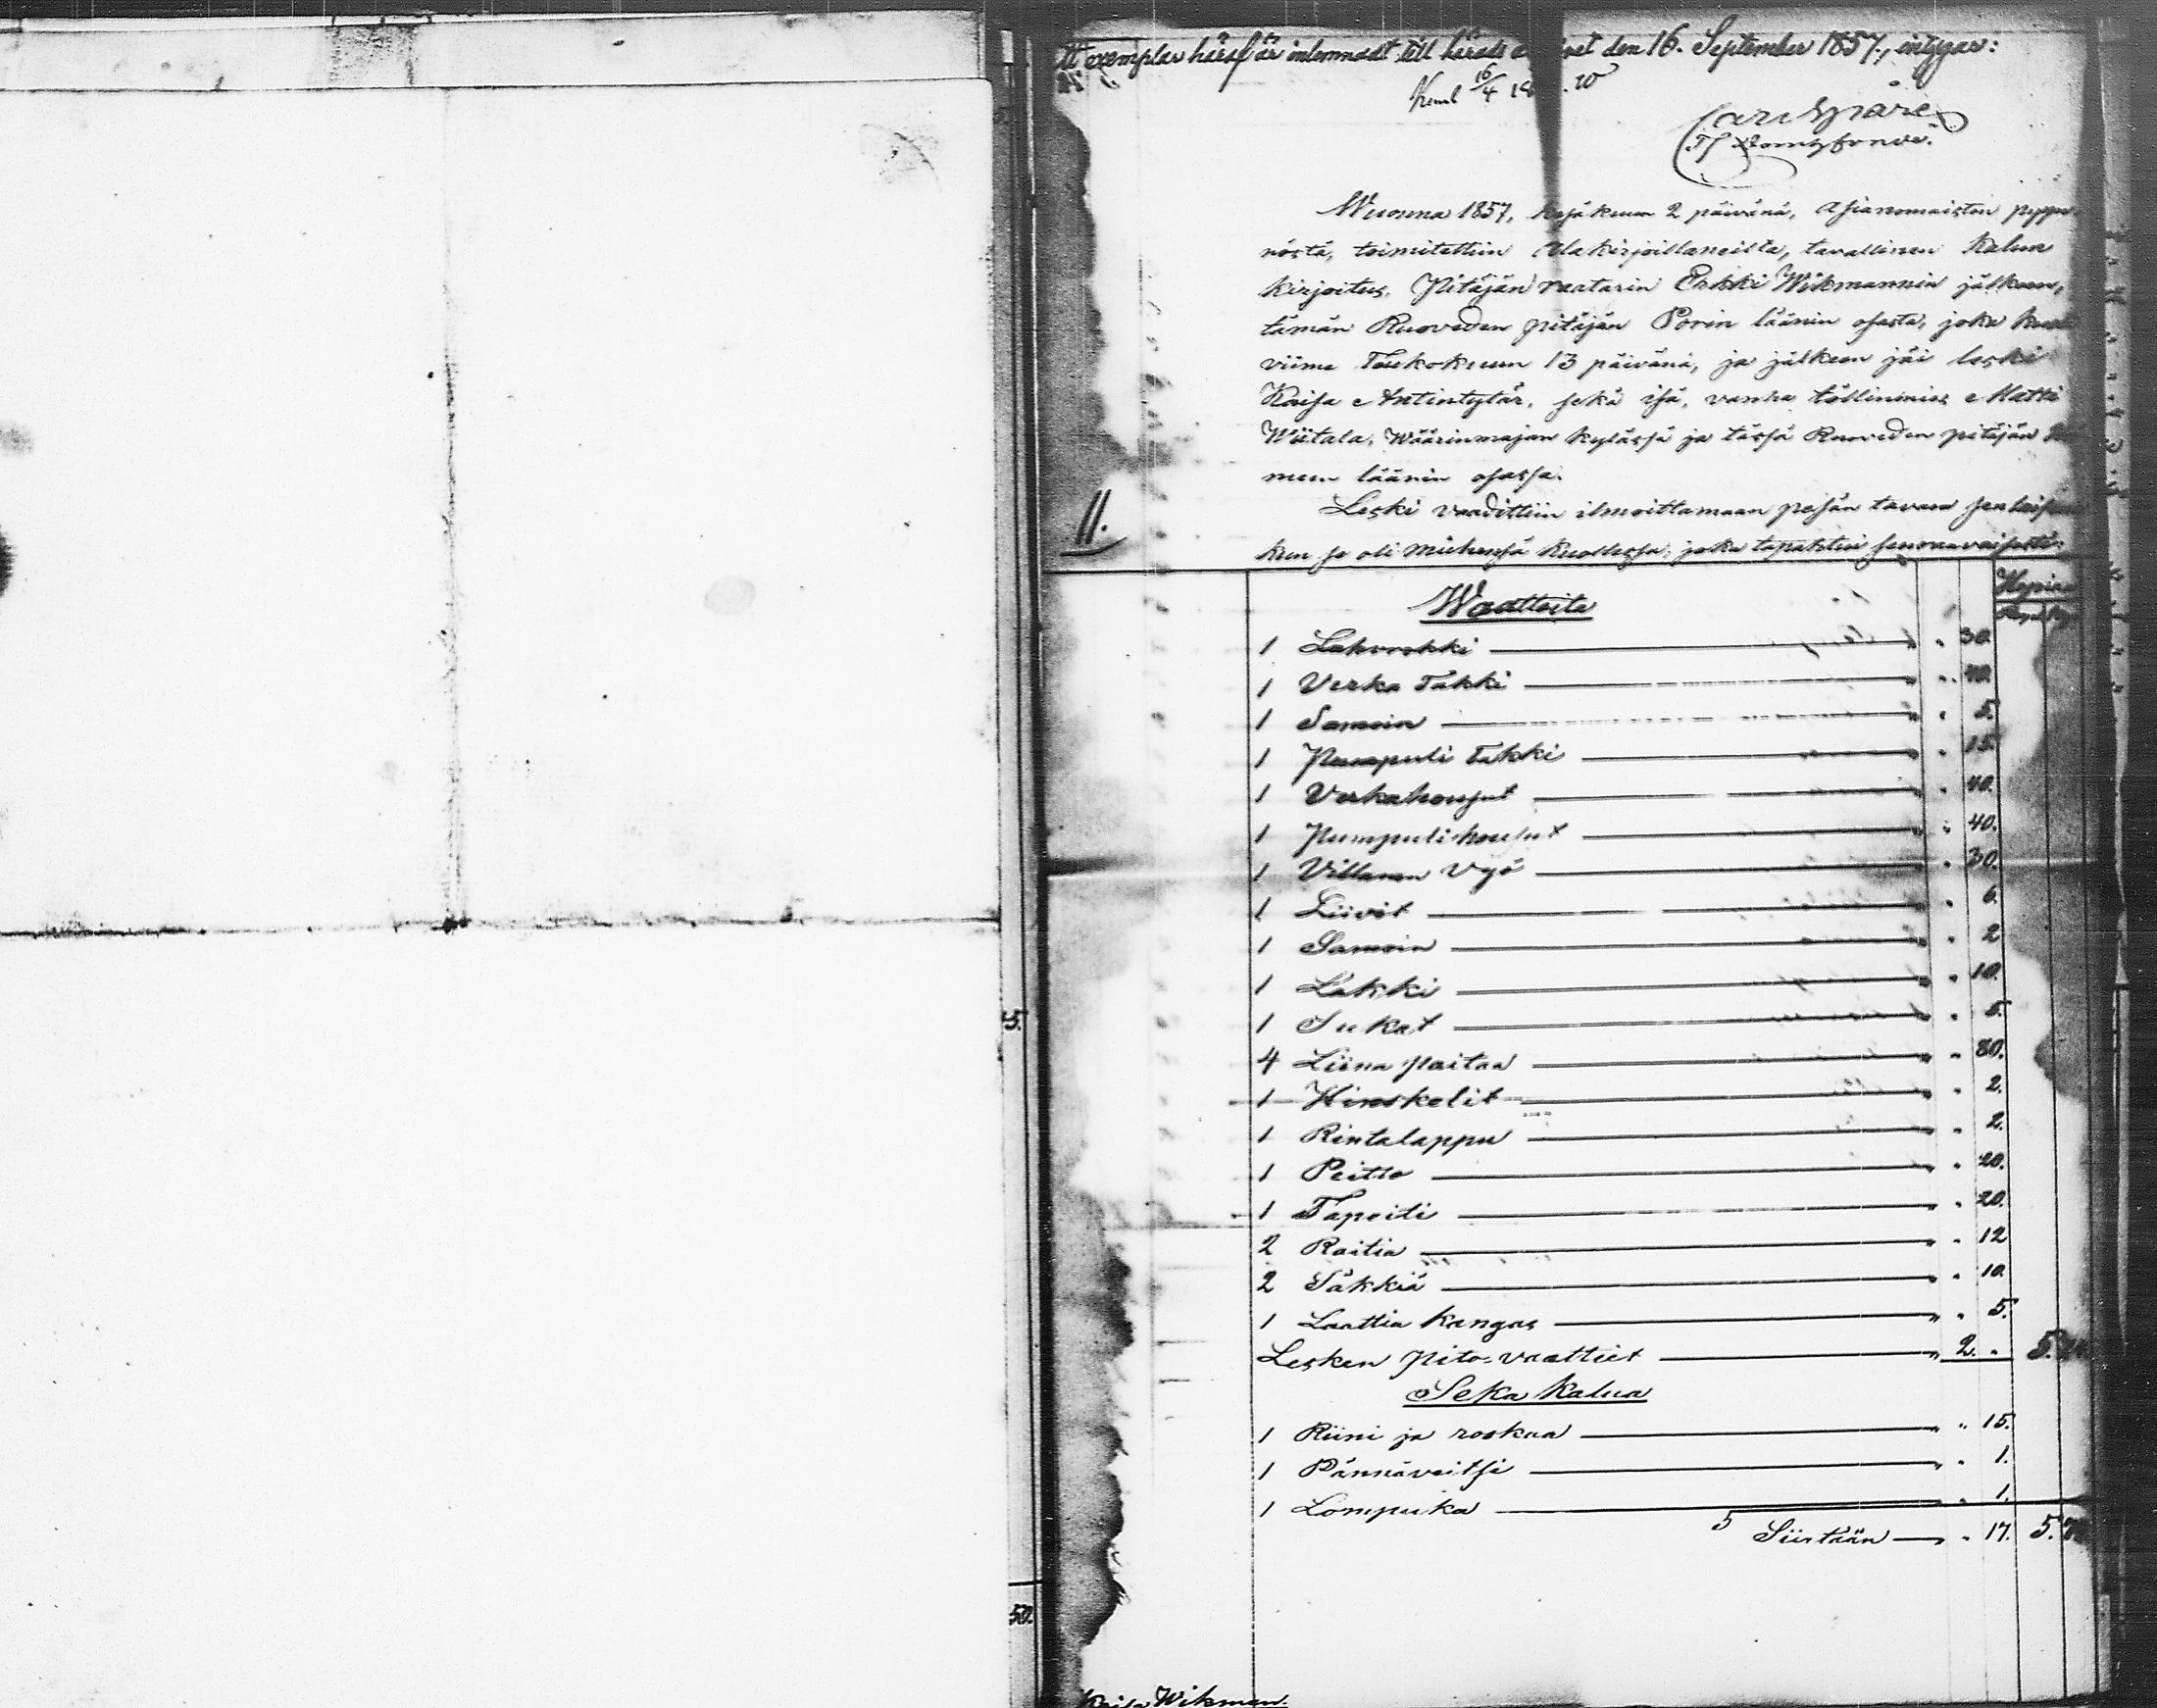 tt exemplar häraf är inlemnadt till härads den 16. September 1857., intygar:
16/4
Carl Spåre
Tf Domhfvnde.
Wuonna 1857, kesäkuun 2 päivänä, Asianomaisten pyynnöstä, toimitettiin Allakirjoittaneilta, tavallinen Kalun
kirjoitus, Pitäjän raatarin Erkki Wikmannin jälkeen,
tämän Ruoveden pitäjän Porin läänin osasta, joka kuoli
viime Toukokuun 13 päivänä, ja jälkeen jäi leski
Kaisa Antintytär, sekä isä, vanha töllinmies Matti
Wiitala, Wäärinmajan kylässä ja tässä Ruoveden pitäjän
meen läänin osassa.
11.
Leski vaadittiin ilmoittamaan pesän tavara
kun se oli miehensä kuollessa, joka tapahtui seuraavaisesti:
Waatteita
1 30.
1 Verka Takki
1 Samoin 5.
1 Pumpuli Takki 15.
1 Verkahousut 40.
1 Pumpulihousut 40.
1 Villanen Vyö 30.
1 Liivit 6.
1 Samoin 2
1 Lakki 10.
1 Sukat 5.
4 Liina paitaa 80.
1 Hinskelit 2.
1 Rintalappu 2.
1 Peitto 20.
1 Tapeiti 20.
2 Raitia 12
2 Säkkiä 10.
1 Laattia kangas 5.
Lesken Pito-vaattiet 2. 5.
Seka Kalua
1 Riini ja roskaa 15.
1 Pännäveitsi 1.
1 Lompuka 1.
5 Siirtään 17. 5.
Kaisa Wikman.
5.
50.